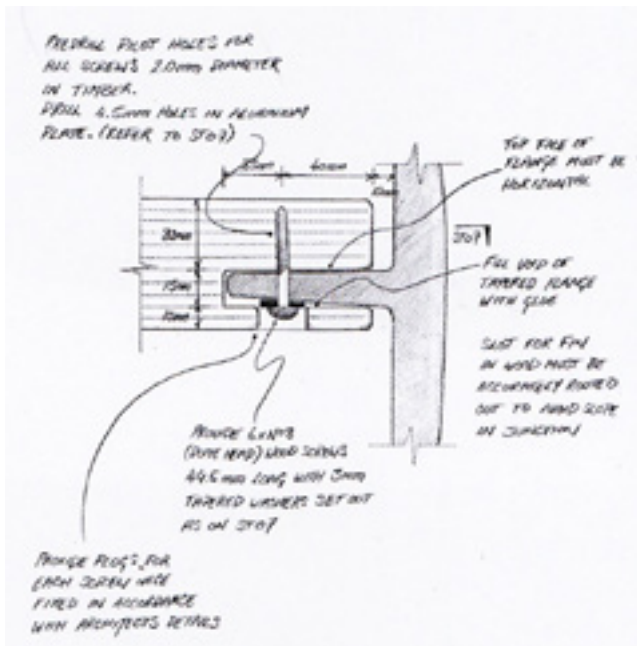 PREDRILL PILOT HOLES FOR
ALL SCREWS 2.0mm DIAMETER
IN TIMBER.
DRILL 4.5mm HOLES IN ALUMINIUM
PLATE. (REFER TO ST07)
TOP FACE OF
FLANGE MUST BE
HORIZONTAL
40mm
ST07
15mm
FILL VOID OF
TAPERED FLANGE
WITH GLUE
SLOT FOR FIN
IN WOOD MUST BE
ACCURATELY ROUTED
OUT TO AVOID SLOPE
IN JUNCTION
PROVIDE
(DOME HEAD) WOOD SCREWS
44.5mm LONG WITH 3mm
TAPERED WASHERS SET OUT
AS ON ST07
PROVIDE PLUGS FOR
EACH SCREW HOLE
FIXED IN ACCORDANCE
WITH ARCHITECTS DETAILS